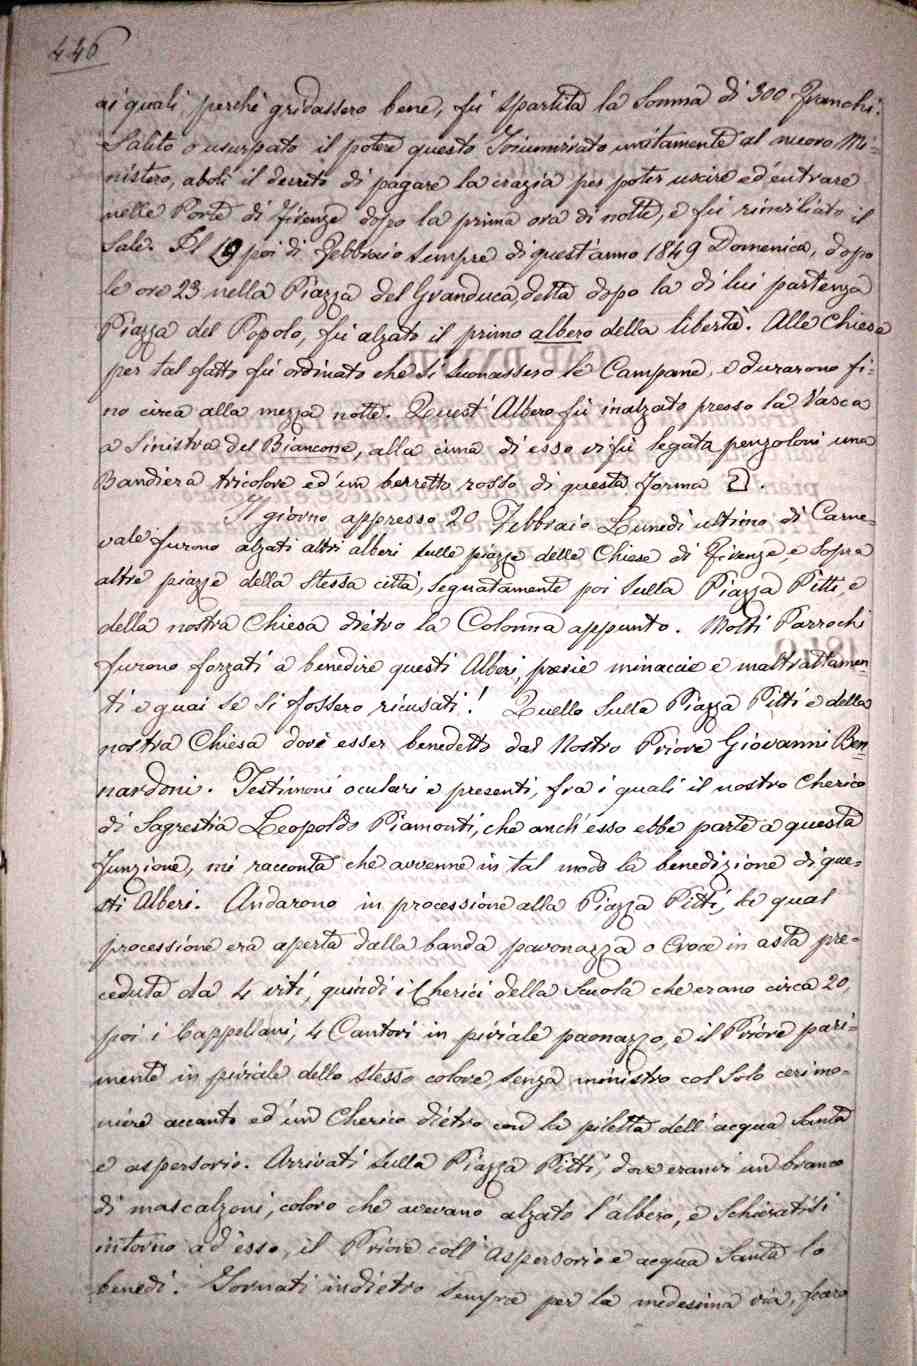 446
ai quali perchè gridassero bene, fù spartita la Somma di 300 Franchi.
Salito o usurpato il potere questo Triumvirato unitamente al nuovo Mi=
nistero, abolì il decreto di pagare la crazia per poter uscire ed entrare
nelle Porte di Firenze dopo la prima ora di notte, e fù rinviliato il
Sale. Il 19 poi di Febbraio sempre di quest'anno 1849 Domenica, dopo
le ore 23 nella Piazza del Granduca, detta dopo la di lui partenza
Piazza del Popolo, fù alzato il primo albero della libertà. Alle Chiese
per tal fatto fù ordinato che si suonassero le Campane, e durarono fi=
no circa alla mezza notte. Quest'Albero fù inalzato presso la Vasca
a Sinistra del Biancone, alla cima di esso vi fù legata penzoloni una
Bandiera tricolore ed un berretto rosso di questa forma .
Il giorno appresso 20 Febbraio Lunedì ultimo di Carne=
vale furono alzati altri alberi sulle piazze delle Chiese di Firenze, e sopra
altre piazze della stessa città, segnatamente poi sulla Piazza Pitti, e
della nostra Chiesa dietro la Colonna appunto. Molti Parrochi
furono forzati a benedire questi Alberi, previe minaccie e maltrattamen=
ti e guai se si fossero ricusati! Quello sulla Piazza Pitti e della
nostra Chiesa dovè esser benedetto dal Nostro Priore Giovanni Ben=
nardoni. Testimoni oculari e presenti, fra i quali il nostro Cherico
di Sagrestia Leopoldo Piamonti, che anch'esso ebbe parte a questa
Funzione, mi racconta che avvenne in tal modo la benedizione di que=
sti Alberi. Andarono in processione alla Piazza Pitti, la qual
processione era aperta dalla banda pavonazza o Croce in asta pre=
ceduta da 4 viti, quindi i Cherici della Scuola che erano circa 20,
poi i Cappellani, 4 Cantori in piviale paonazzo, e il Priore pari=
mente in piviale dello stesso colore, senza ministro col solo cerimo=
niere accanto ed un Cherico dietro con la piletta dell'acqua Santa
e aspersorio. Arrivati sulla Piazza Pitti, dove eranvi un branco
di mascalzoni, coloro che avevano alzato l'albero, e Schieratisi
intorno ad esso, il Priore coll'aspersorio e acqua Santa lo
benedì. Tornati indietro sempre per la medesima via, fecero